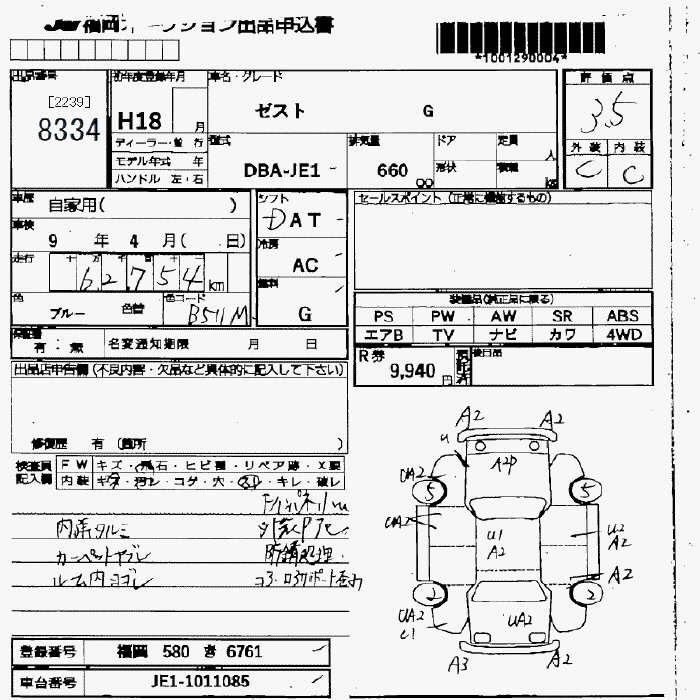 JU 福岡オークション出品申込書
*1001290004*
出品番号
[2239]
8334
初年度登録年月
H18 月
ディーラー・並行
モデル年式 年
ハンドル 左・右
車名・グレード
ゼスト G
型式
DBA-JE1
排気量
660 cc
ドア
形状
定員
人
積載
kg
評価点
3.5
外装 内装
C C
車歴
自家用( )
車検
9 年 4 月( 日)
走行
十 万 千 百 十 一
62754 km
色
ブルー
色替
色コード
B511M
シフト
DAT
冷房
AC
燃料
G
セールスポイント(正常に機能するもの)
装備品(純正品に限る)
PS PW AW SR ABS
エアB TV ナビ カワ 4WD
保証書
有 : 無
名変通知期限 月 日
R券
9,940 円
後日品
出品店申告欄(不良内容・欠品など具体的に記入して下さい)
修復歴 有(箇所 )
検査員
記入欄
FW キズ・飛石・ヒビ種・リペア跡・X要
内装 キズ・汚レ・コゲ・穴・スレ・キレ・破レ
内張タルミ
カーペットヤブレ
防錆処理
ルーム内ヨゴレ
A2 A2
u
UA2 A2P
5 5
UA2 u1 A2 u2 A2
A2
2 2
UA2 u1 UA2
A3 A2
登録番号 福岡 580 き 6761
車台番号 JE1-1011085